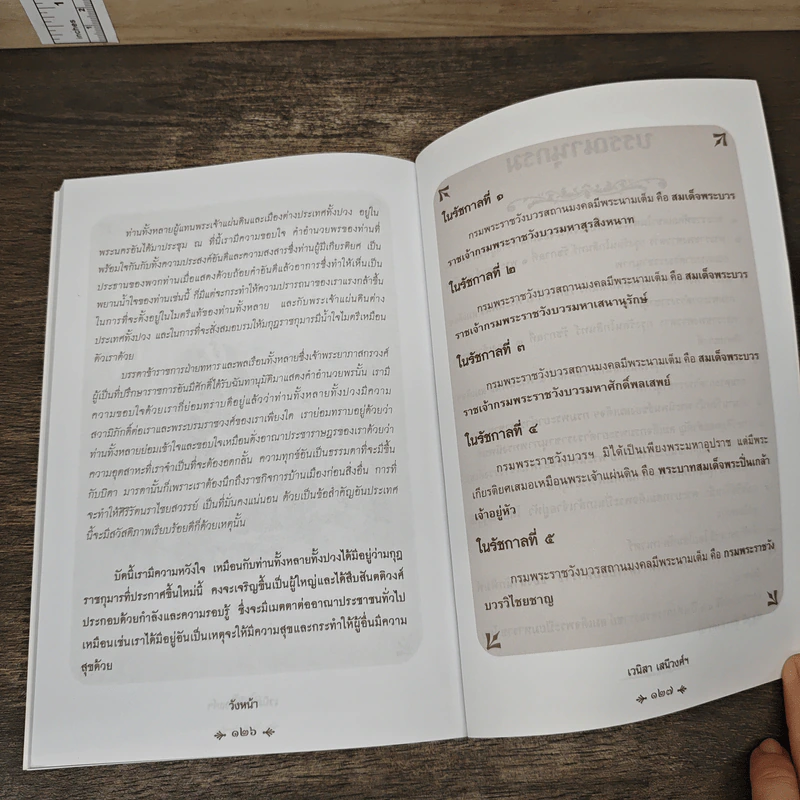 ท่านทั้งหลายผู้แทนพระเจ้าแผ่นดินและเมืองต่างประเทศทั้งปวง อยู่ใน
พระนครอันได้มาประชุม ณ ที่นี้เรามีความขอบใจ คำอำนวยพรของท่านที่
พร้อมใจกันกับทั้งความประสงค์อันดีและความสงสารซึ่งท่านผู้มีเกียรติยศ เป็น
ประธานของพวกท่านเมื่อแสดงด้วยถ้อยคำอันดีแล้วอาการซึ่งทำให้เห็นเป็น
พยานน้ำใจของท่านเช่นนี้ ก็มีแต่จะกระทำให้ความปรารถนาของเราแรงกล้าขึ้น
ในการที่จะตั้งอยู่ในไมตรีแท้ของท่านทั้งหลาย และกับพระเจ้าแผ่นดินต่าง
ประเทศทั้งปวง และในการที่จะสั่งสมอบรมให้มกุฎราชกุมารมีน้ำใจไมตรีเหมือน
ตัวเราด้วย
บรรดาข้าราชการฝ่ายทหาร และพลเรือนทั้งหลายซึ่งเจ้าพระยาภาสกรวงศ์
ผู้เป็นที่ปรึกษาราชการอันมีศักดิ์ได้รับฉันทานุมัติมาแสดงคำอำนวยพรนั้น เรามี
ความขอบใจด้วยเราก็ย่อมทราบดีอยู่แล้วว่าท่านทั้งหลายทั้งปวงมีความ
สวามิภักดิ์ต่อเราและพระบรมราชวงศ์ของเราเพียงใด เราย่อมทราบอยู่ด้วยว่า
ท่านทั้งหลายย่อมเข้าใจและขอบใจเหมือนดังอาณาประชาราษฎรของเราด้วยว่า
ความอุตสาหะที่เราจำเป็นที่จะต้องอดกลั้น ความทุกข์อันเป็นธรรมดาที่จะมีขึ้น
กับบิดา มารดานั้นก็เพราะเราต้องนึกถึงราชกิจการบ้านเมืองก่อนสิ่งอื่น การที่
จะทำให้ศิริรัตนราไชยสวรรย์ เป็นที่มั่นคงแน่นอน ด้วยเป็นข้อสำคัญอันประเทศ
นี้จะมีสวัสดิภาพเรียบร้อยดีก็ด้วยเหตุนั้น
บัดนี้เรามีความหวังใจ เหมือนกับท่านทั้งหลายทั้งปวงได้มีอยู่ว่ามกุฎ
ราชกุมารที่ประกาศขึ้นใหม่นี้ คงจะเจริญขึ้นเป็นผู้ใหญ่และได้สืบสันตติวงศ์
ประกอบด้วยกำลังและความรอบรู้ ซึ่งจะมีเมตตาต่ออาณาประชาชนทั่วไป
เหมือนเช่นเราได้มีอยู่อันเป็นเหตุจะให้มีความสุขและกระทำให้ผู้อื่นมีความ
สุขด้วย
วังหน้า
๑๒๖
ในรัชกาลที่ ๑
กรมพระราชวังบวรสถานมงคลมีพระนามเต็ม คือ สมเด็จพระบวร
ราชเจ้ากรมพระราชวังบวรมหาสุรสิงหนาท
ในรัชกาลที่ ๒
กรมพระราชวังบวรสถานมงคลมีพระนามเต็ม คือ สมเด็จพระบวร
ราชเจ้ากรมพระราชวังบวรมหาเสนานุรักษ์
ในรัชกาลที่ ๓
กรมพระราชวังบวรสถานมงคลมีพระนามเต็ม คือ สมเด็จพระบวร
ราชเจ้ากรมพระราชวังบวรมหาศักดิ์พลเสพย์
ในรัชกาลที่ ๔
กรมพระราชวังบวรฯ มิได้เป็นเพียงพระมหาอุปราช แต่มีพระ
เกียรติยศเสมอเหมือนพระเจ้าแผ่นดิน คือ พระบาทสมเด็จพระปิ่นเกล้า
เจ้าอยู่หัว
ในรัชกาลที่ ๕
กรมพระราชวังบวรสถานมงคลมีพระนามเต็ม คือ กรมพระราชวัง
บวรวิไชยชาญ
เวนิสา เสนีวงศ์ฯ
๑๒๗
inches
1
2